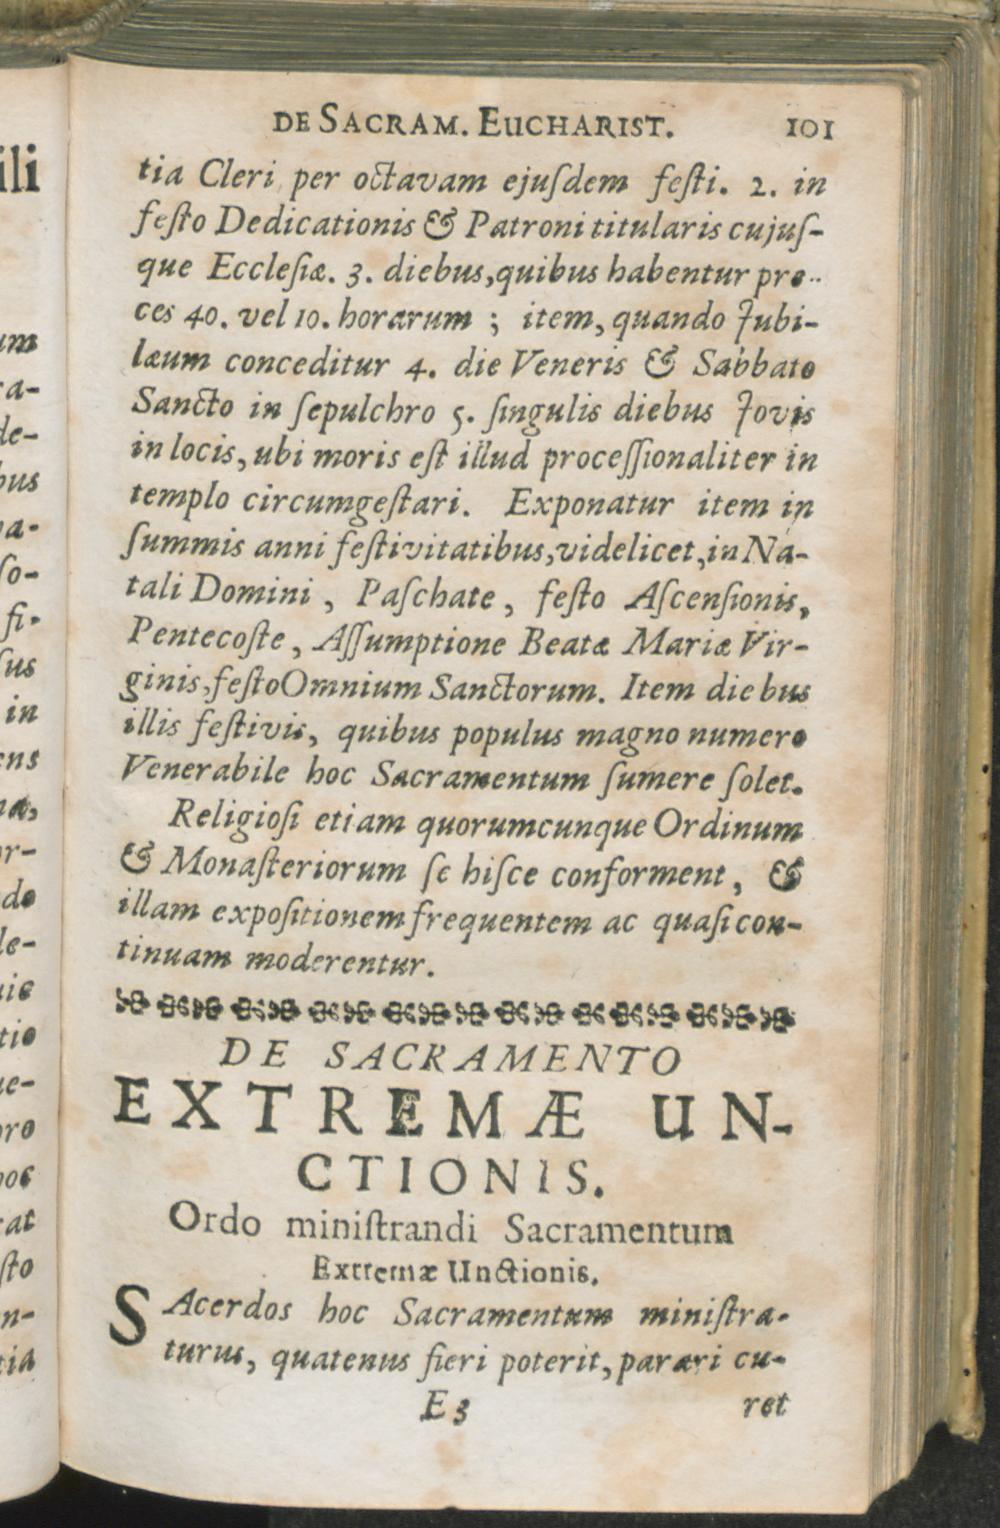 DE SACRAM. EUCHARIST. 101
tia Cleri per octavam ejuſdem feſti. 2. in
feſto Dedicationis & Patroni titularis cujuſ-
que Eccleſiæ. 3. diebus, quibus habentur pre-
ces 40. vel 10. horarum ; item, quando Jubi-
læum conceditur 4. die Veneris & Sabbato
Sancto in ſepulchro 5. ſingulis diebus Jovis
in locis, ubi moris eſt illud proceſſionaliter in
templo circumgeſtari. Exponatur item in
ſummis anni feſtivitatibus, videlicet, in Na-
tali Domini , Paſchate , feſto Aſcenſionis,
Pentecoſte , Aſſumptione Beatæ Mariæ Vir-
ginis, feſto Omnium Sanctorum. Item diebus
illis feſtivis, quibus populus magno numero
Venerabile hoc Sacramentum ſumere ſolet.
Religioſi etiam quorumcunque Ordinum
& Monaſteriorum ſe hiſce conforment , &
illam expoſitionem frequentem ac quaſi con-
tinuam moderentur.
DE SACRAMENTO
EXTREMÆ UN-
CTIONIS.
Ordo miniſtrandi Sacramentum
Extremæ Unctionis.
SAcerdos hoc Sacramentum miniſtra-
turus, quatenus fieri poterit, parari cu-
E 3 ret